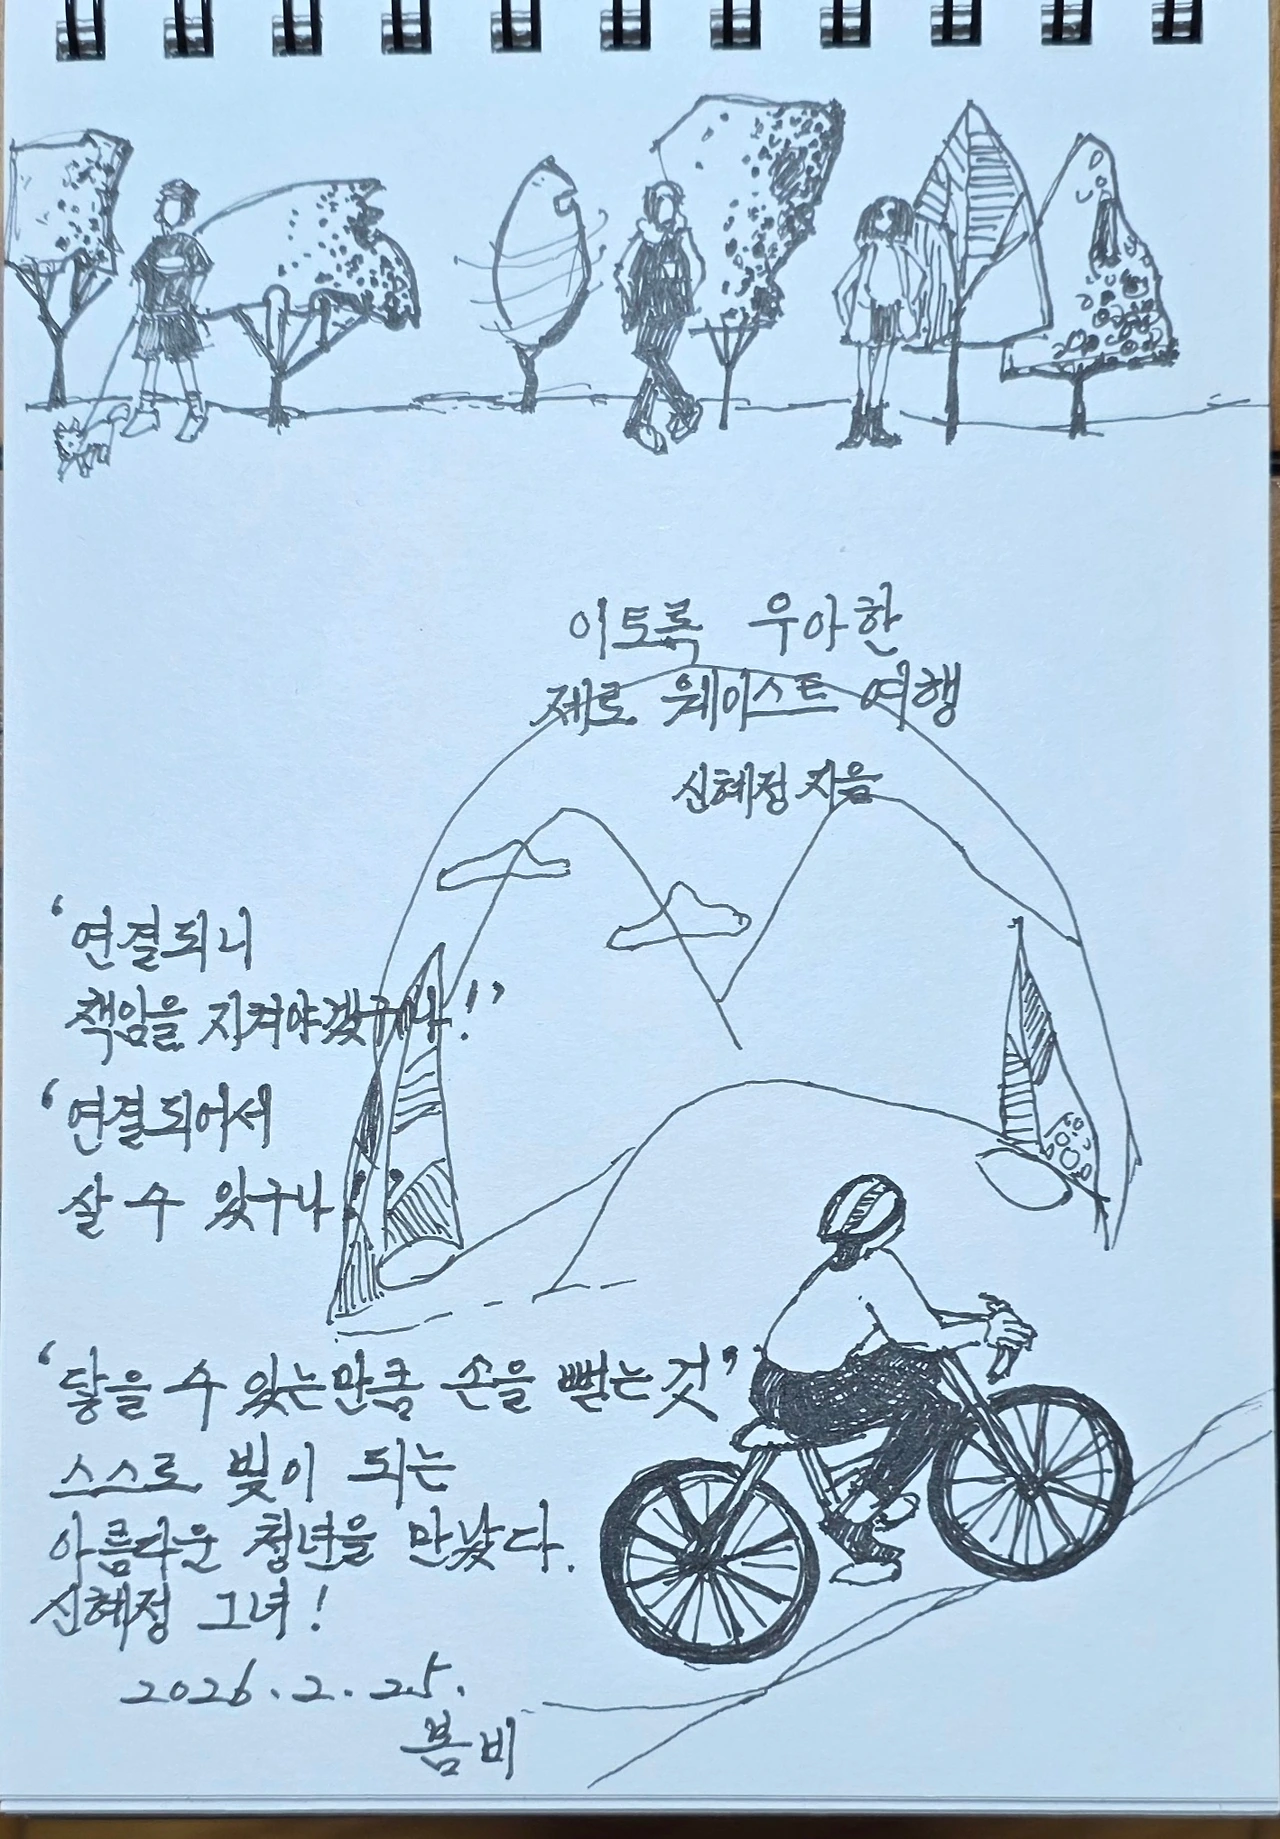 이토록 우아한
제로 웨이스트 여행
신혜정 지음
‘연결되니
책임을 지켜야겠구나!’
‘연결되어서
살 수 있구나!’
‘닿을 수 있는만큼 손을 뻗는 것’
스스로 빛이 되는
아름다운 청년을 만났다.
신혜정 그녀!
2026.2.25.
봄비